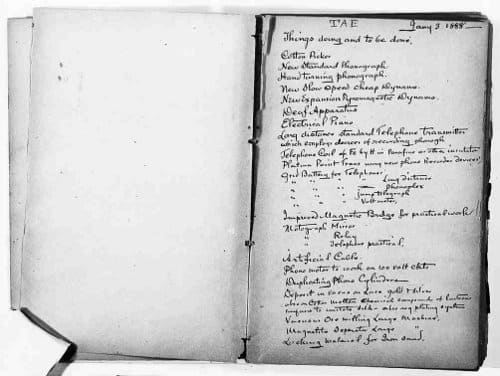 TAE Jany 3 1888
Things doing and to be done.
Cotton Picker
New Standard Phonograph
Hand turning phonograph.
New Slow Speed Cheap Dynamo.
New Expansion Pyromagnetic Dynamo.
Deaf Apparatus
Electrical Piano
Long distance standard Telephone Transmitter
which employs devices of recording phonogh
Telephone Coil of Fe by tt in Parafine or other insulator
Platina Point Trans using new phono Recorder devices,
Grid Battery for Telephones
" " " Long distance
" " " phonoplex
" " " jump telegraph
" " " Voltmeter,
Improved Magnetic Bridge for practical work
Motograph Mirror
" Relay
" Telephone practical,
Artificial Cable
Phone motor to work on 100 volt ckts
Duplicating Phono Cylinders
Deposit in vacuo on Lace, gold & silver
also on cotton molten chemical compounds of lustrous
surface to imitate silk also reg plating system
Vacuous Ore milling Large Machine,
Magnetite Separator Large "
Locking material for Iron sand,